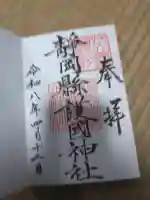 奉拝
靜岡縣護國神社
令和八年四月十三日